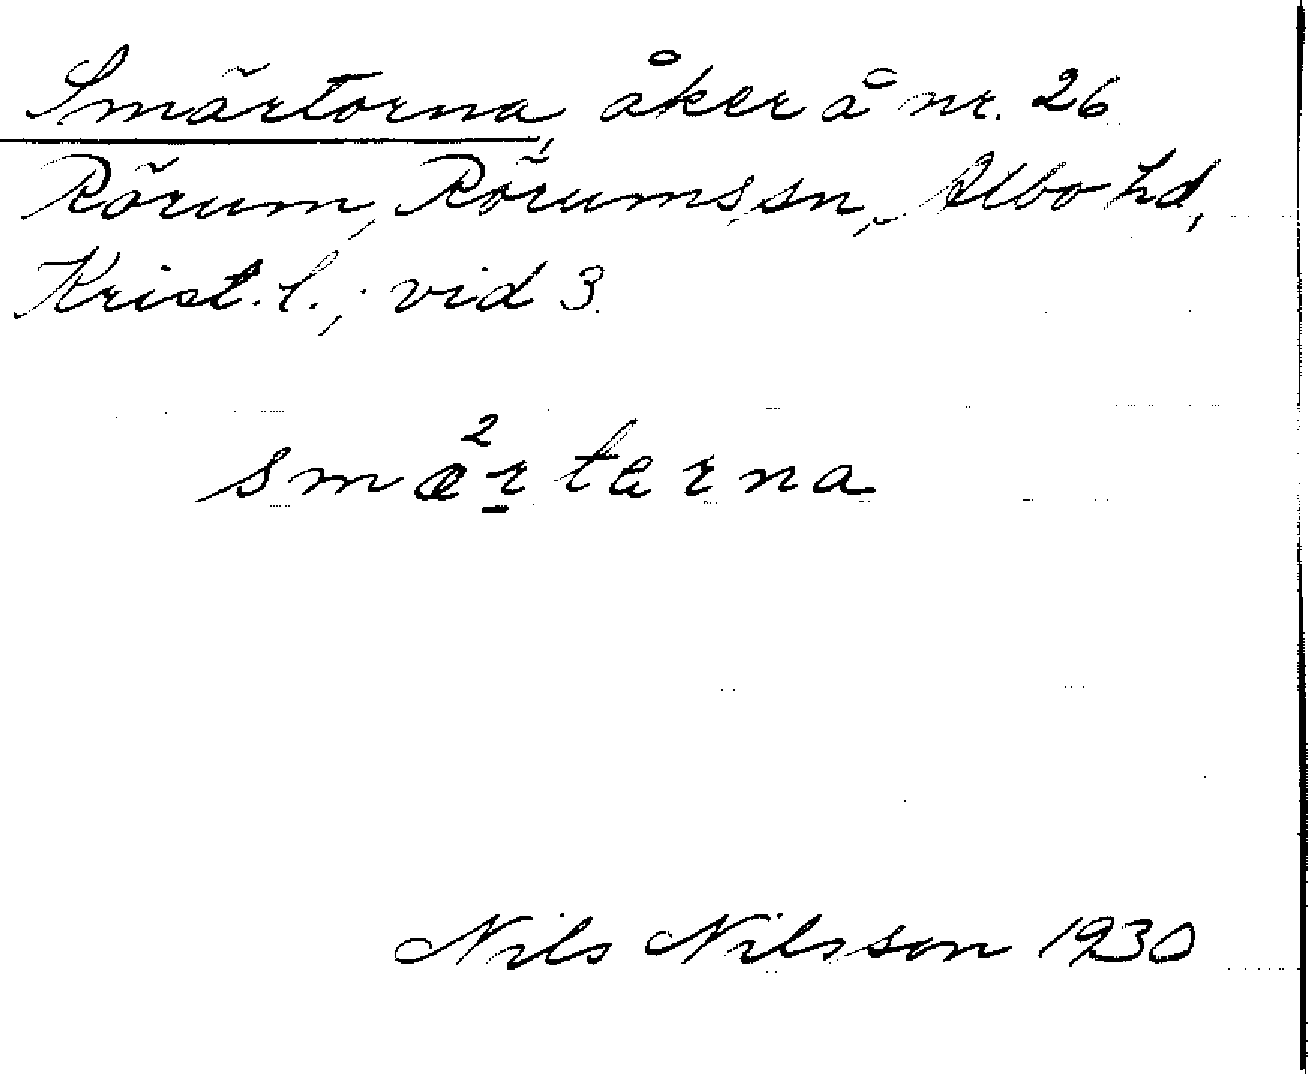 Smärtorna, åker å nr. 26
Rörum, Rörums sn, Albo hd,
Krist. l.; vid 3.
smæ²rtarna
Nils Nilsson 1930